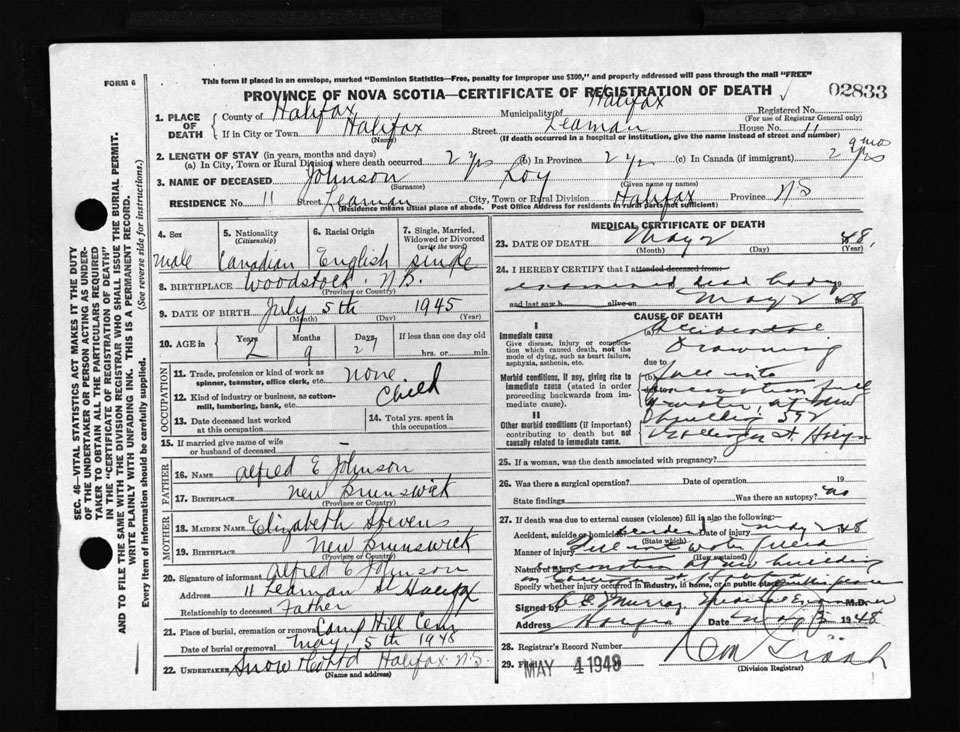 FORM 6
This form if placed in an envelope, marked "Dominion Statistics—Free, penalty for improper use $300," and properly addressed will pass through the mail "FREE"
PROVINCE OF NOVA SCOTIA—CERTIFICATE OF REGISTRATION OF DEATH
02833
SEC. 46—VITAL STATISTICS ACT MAKES IT THE DUTY
OF THE UNDERTAKER OR PERSON ACTING AS UNDER-
TAKER TO OBTAIN ALL THE PARTICULARS REQUIRED
IN THE "CERTIFICATE OF REGISTRATION OF DEATH"
AND TO FILE THE SAME WITH THE DIVISION REGISTRAR WHO SHALL ISSUE THE BURIAL PERMIT.
WRITE PLAINLY WITH UNFADING INK. THIS IS A PERMANENT RECORD.
Every item of information should be carefully supplied. (See reverse side for instructions.)
1. PLACE OF DEATH
County of Halifax Municipality of Halifax Registered No.
(For use of Registrar General only)
If in City or Town Halifax Street Leaman House No. 11
(Name) (If death occurred in a hospital or institution, give the name instead of street and number)
2. LENGTH OF STAY (in years, months and days)
(a) In City, Town or Rural Division where death occurred 2 yrs (b) In Province 2 yrs (c) In Canada (if immigrant) 2 yrs 9 mos
3. NAME OF DECEASED Johnson Roy
(Surname) (Given name or names)
RESIDENCE No. 11 Street Leaman City, Town or Rural Division Halifax Province N.S
(Residence means usual place of abode. Post Office Address for residents in rural parts not sufficient)
4. Sex
male
5. Nationality
(Citizenship)
Canadian
6. Racial Origin
English
7. Single, Married, Widowed or Divorced
(write the word)
single
8. BIRTHPLACE Woodstock N.B.
(Province or Country)
9. DATE OF BIRTH July 5th 1945
(Month) (Day) (Year)
10. AGE in Years 2 Months 9 Days 27 If less than one day
hrs. or min.
OCCUPATION
11. Trade, profession or kind of work as
spinner, teamster, office clerk, etc. None
12. Kind of industry or business, as cotton-
mill, lumbering, bank, etc. Child
13. Date deceased last worked
at this occupation
14. Total yrs. spent in
this occupation
15. If married give name of wife
or husband of deceased —
FATHER
16. NAME Alfred E Johnson
17. BIRTHPLACE New Brunswick
(Province or Country)
MOTHER
18. MAIDEN NAME Elizabeth Stevens
19. BIRTHPLACE New Brunswick
(Province or Country)
20. Signature of informant Alfred E Johnson
Address 11 Leaman St Halifax
Relationship to deceased Father
21. Place of burial, cremation or removal Camp Hill Cem
Date of burial or removal May 5th 1948
22. UNDERTAKER Snow Halifax N.S.
(Name and address)
MEDICAL CERTIFICATE OF DEATH
23. DATE OF DEATH May 2 48
(Month) (Day) (Year)
24. I HEREBY CERTIFY that I attended deceased from:
examined dead body
and last saw h alive on May 2 48
CAUSE OF DEATH
I
Immediate cause
Give disease, injury or complica-
tion which caused death, not the
mode of dying, such as heart failure,
asphyxia, asthenia, etc.
(a) Accidental
Drowning
due to
Morbid conditions, if any, giving rise to
immediate cause (stated in order
proceeding backwards from im-
mediate cause).
(b) Fell into
excavation full
water at new
II
Other morbid conditions (if important)
contributing to death but not
causally related to immediate cause.
building 592
St. Halifax
25. If a woman, was the death associated with pregnancy?
26. Was there a surgical operation? Date of operation 19
State findings Was there an autopsy? no
27. If death was due to external causes (violence) fill in also the following:—
Accident, suicide or homicide? accident Date of injury May 2 48
(State which)
Manner of injury Fell into water filled
(How sustained)
Nature of injury excavation at new building
Specify whether injury occurred in industry, in home, or in public place
Signed by Murray Medical Examiner M.D.
Address Halifax Date May 3 1948
28. Registrar's Record Number
29. Filed MAY 4 1948
(Division Registrar)